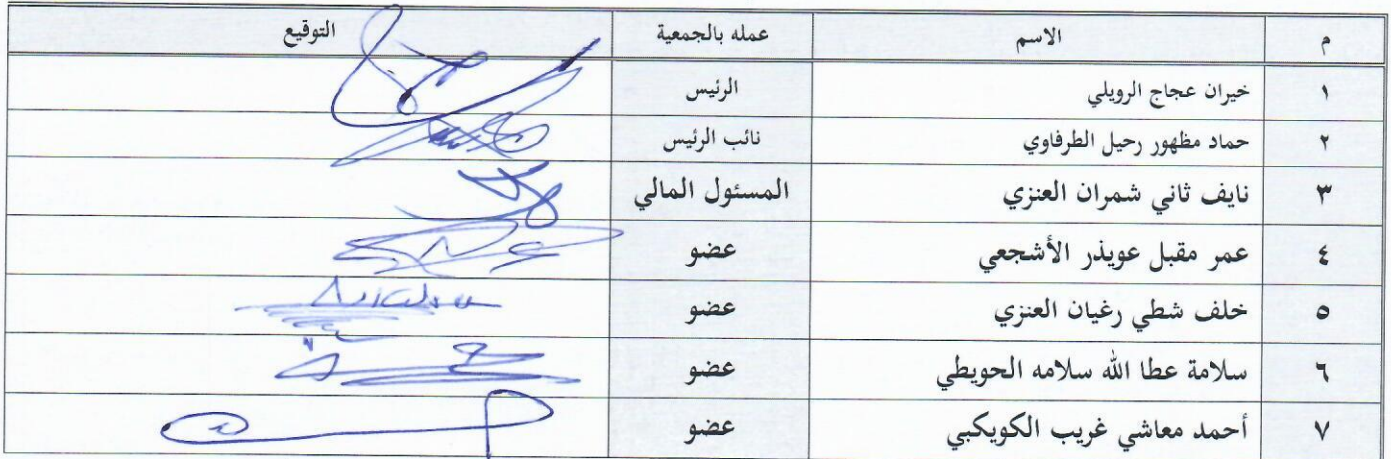 م الاسم عمله بالجمعية التوقيع
١ خيران عجاج الرويلي الرئيس
٢ حماد مظهور رحيل الطرفاوي نائب الرئيس
٣ نايف ثاني شمران العنزي المسئول المالي
٤ عمر مقبل عويذر الأشجعي عضو
٥ خلف شطي رغيان العنزي عضو
٦ سلامة عطا الله سلامه الحويطي عضو
٧ أحمد معاشي غريب الكويكبي عضو